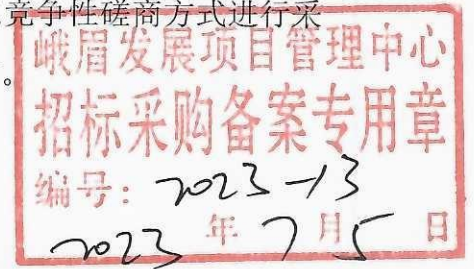 竞争性磋商方式进行采
。
峨眉发展项目管理中心
招标采购备案专用章
编号：2023-13
2023年7月5日